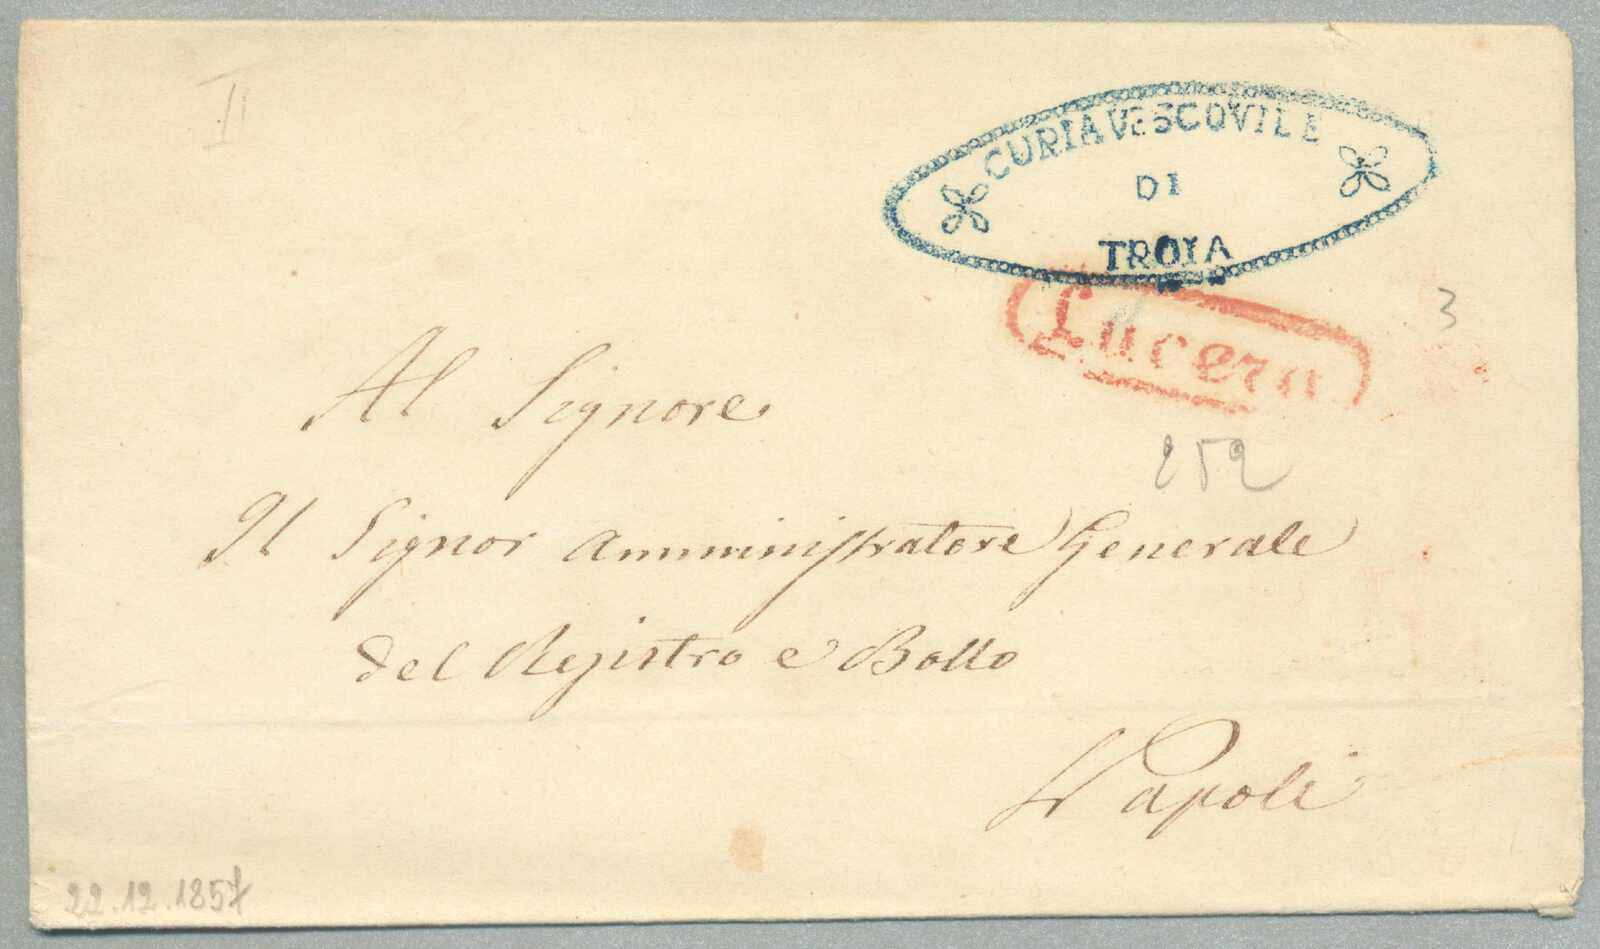 II
CURIA VESCOVILE
DI
TROIA
Lucera
3
Al Signore
252
Il Signor Amministratore Generale
del Registro e Bollo
Napoli
22.12.1857